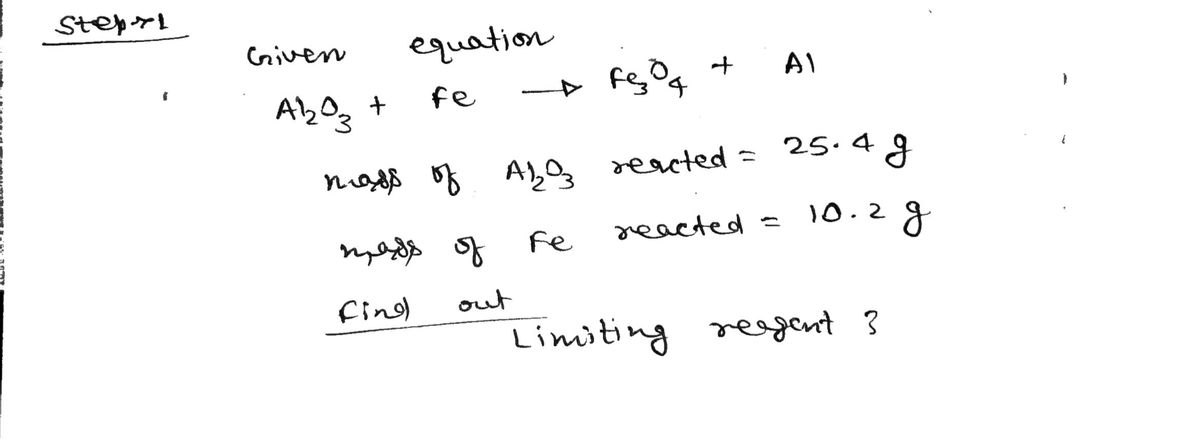 Step-1
Given equation
Al₂O₃ + Fe → Fe₃O₄ + Al
mass of Al₂O₃ reacted = 25.4 g
mass of Fe reacted = 10.2 g
Find out
Limiting reagent ?